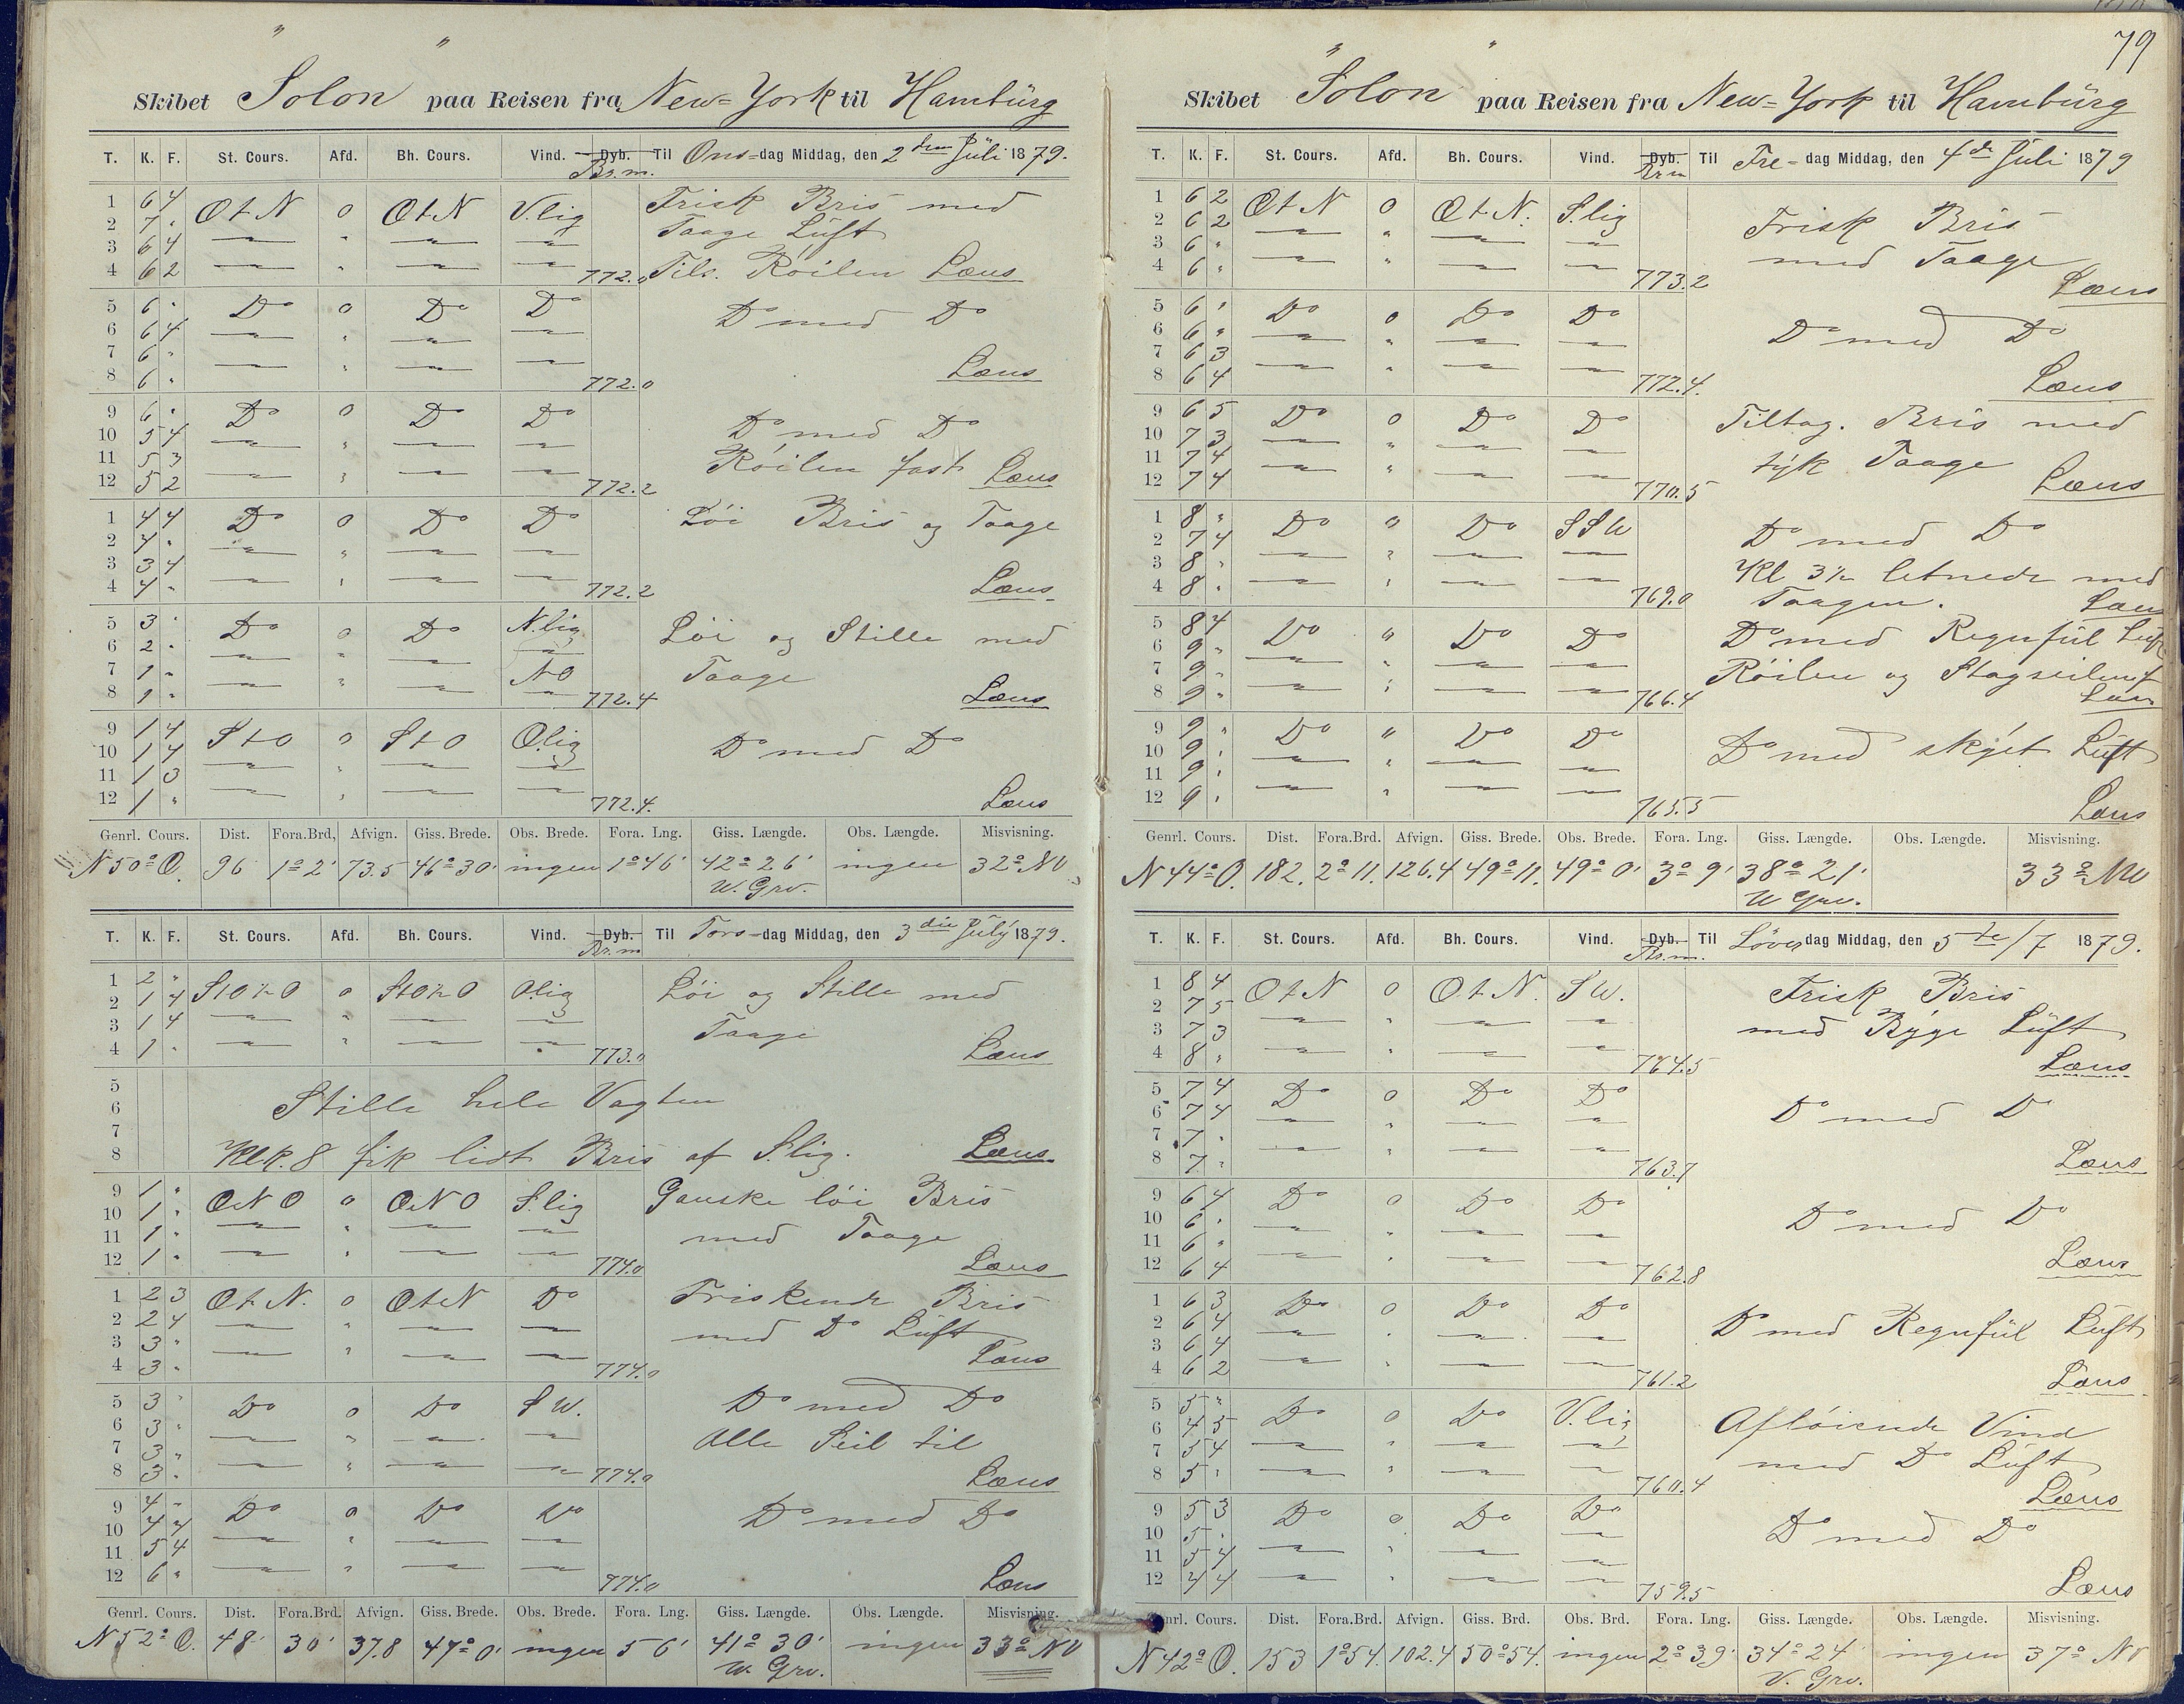 Skibet "Solon" paa Reisen fra New=York til Hamburg
T. K. F. St. Cours. Afd. Bh. Cours. Vind. Dyb. Br.m. Til Ons-dag Middag, den 2den Juli 1879.
1 6 4 OtN 0 OtN V.lig Frisk Bris med
2 7 " Taage Luft
3 6 4
4 6 2 772.0 Tils. Röilen Læns
5 6 " Do 0 Do Do Do med Do
6 6 4
7 6 "
8 6 " 772.0 Læns
9 6 " Do 0 Do Do Do med Do
10 5 4
11 5 3 Röilen fast Læns
12 5 2 772.2
1 4 4 Do 0 Do Do Löi Bris og Taage
2 4 "
3 3 4
4 4 " 772.2 Læns
5 3 " Do 0 Do N.lig Löi og Stille med
6 2 "
7 1 " NO Taage
8 1 " 772.4 Læns
9 1 4 StO 0 StO O.lig Do med Do
10 1 4
11 1 3
12 1 " 772.4. Læns
Genrl. Cours. Dist. Fora.Brd, Afvign. Giss. Brede. Obs. Brede. Fora. Lng. Giss. Længde. Obs. Længde. Misvisning.
N 50° O. 96 1° 2' 73.5 46° 30' ingen 1° 46' 42° 26' ingen 32° NV
W. Grv.
T. K. F. St. Cours. Afd. Bh. Cours. Vind. Dyb. Br.m Til Tors-dag Middag, den 3die July 1879.
1 2 " StO½O 0 StO½O O.lig Löi og Stille med
2 1 4
3 1 4 Taage
4 1 " 773.0 Læns
5
6 Stille hele Vagten
7
8 Klk. 8 fik lidt Bris af S.lig. Læns
9 1 " ONO 0 ONO S.lig Ganske löi Bris
10 1 "
11 1 " med Taage
12 1 " 774.0 Læns
1 2 3 OtN. 0 OtN Do Friskende Bris
2 2 4 med Do Luft
3 3 "
4 3 " 774.0 Læns
5 3 " Do 0 Do SW. Do med Do
6 3 " Alle Seil til
7 3 "
8 3 " 774.0 Læns
9 4 " Do 0 Do Do Do med Do
10 4 4
11 5 4
12 6 " 774.0 Læns
Genrl. Cours. Dist. Fora.Brd. Afvign. Giss. Brede. Obs. Brede. Fora. Lng. Giss. Længde. Obs. Længde. Misvisning.
N 52° O. 48' 30' 37.8 47° 0' ingen 56' 41° 30' ingen 33° NV
W. Grv.
79
Skibet "Solon" paa Reisen fra New=York til Hamburg
T. K. F. St. Cours. Afd. Bh. Cours. Vind. Dyb. Br.m Til Fre-dag Middag, den 4de Juli 1879
1 6 2 OtN 0 OtN. S.lig Frisk Bris
2 6 2
3 6 " med Taage
4 6 " 773.2 Læns
5 6 " Do 0 Do Do Do med Do
6 6 "
7 6 3
8 6 4 772.4. Læns
9 6 5 Do 0 Do Do Tiltag. Bris med
10 7 3
11 7 4 tyk Taage
12 7 4 770.5 Læns
1 8 " Do 0 Do SSW Do med Do
2 7 4
3 8 " Kl 3½ letnede med
4 8 " 769.0 Taagen. Læns
5 8 4 Do " Do Do Do med Regnful Luft
6 9 "
7 9 " Röilen og Stagseilene f
8 9 " 766.4 Læns
9 9 " Do " Do Do Do med skyet Luft
10 9 "
11 9 "
12 9 " 765.5 Læns
Genrl. Cours. Dist. Fora.Brd. Afvign. Giss. Brede. Obs. Brede. Fora. Lng. Giss. Længde. Obs. Længde. Misvisning.
N 44° O. 182. 2° 11. 126.4 49° 11. 49° 0' 3° 9' 38° 21' 33° NW
W Grv.
T. K. F. St. Cours. Afd. Bh. Cours. Vind. Dyb. Br.m. Til Löverdag Middag, den 5te/7 1879.
1 8 4 OtN 0 OtN. SW. Frisk Bris
2 7 5
3 7 3 med Byge Luft
4 8 " 764.5 Læns
5 7 4 Do 0 Do Do Do med Do
6 7 4
7 7 "
8 7 " 763.7 Læns
9 6 4 Do 0 Do Do Do med Do
10 6 "
11 6 "
12 6 4 762.8 Læns
1 6 3 Do 0 Do Do Do med Regnful Luft
2 6 4
3 6 4
4 6 2 761.2 Læns
5 5 " Do 0 Do V.lig Aflöiende Vind
6 4 5
7 5 4 med Do Luft
8 5 " 760.4 Læns
9 5 3 Do 0 Do Do Do med Do
10 5 "
11 5 4
12 4 4 759.5 Læns
Genrl. Cours. Dist. Fora.Brd. Afvign. Giss. Brd. Obs. Brd. Fora. Lng. Giss. Længde. Obs. Længde. Misvisning.
N 42° O. 153 1° 54. 102.4 50° 54. ingen 2° 39' 34° 24 ingen 37° NV
V. Grv.